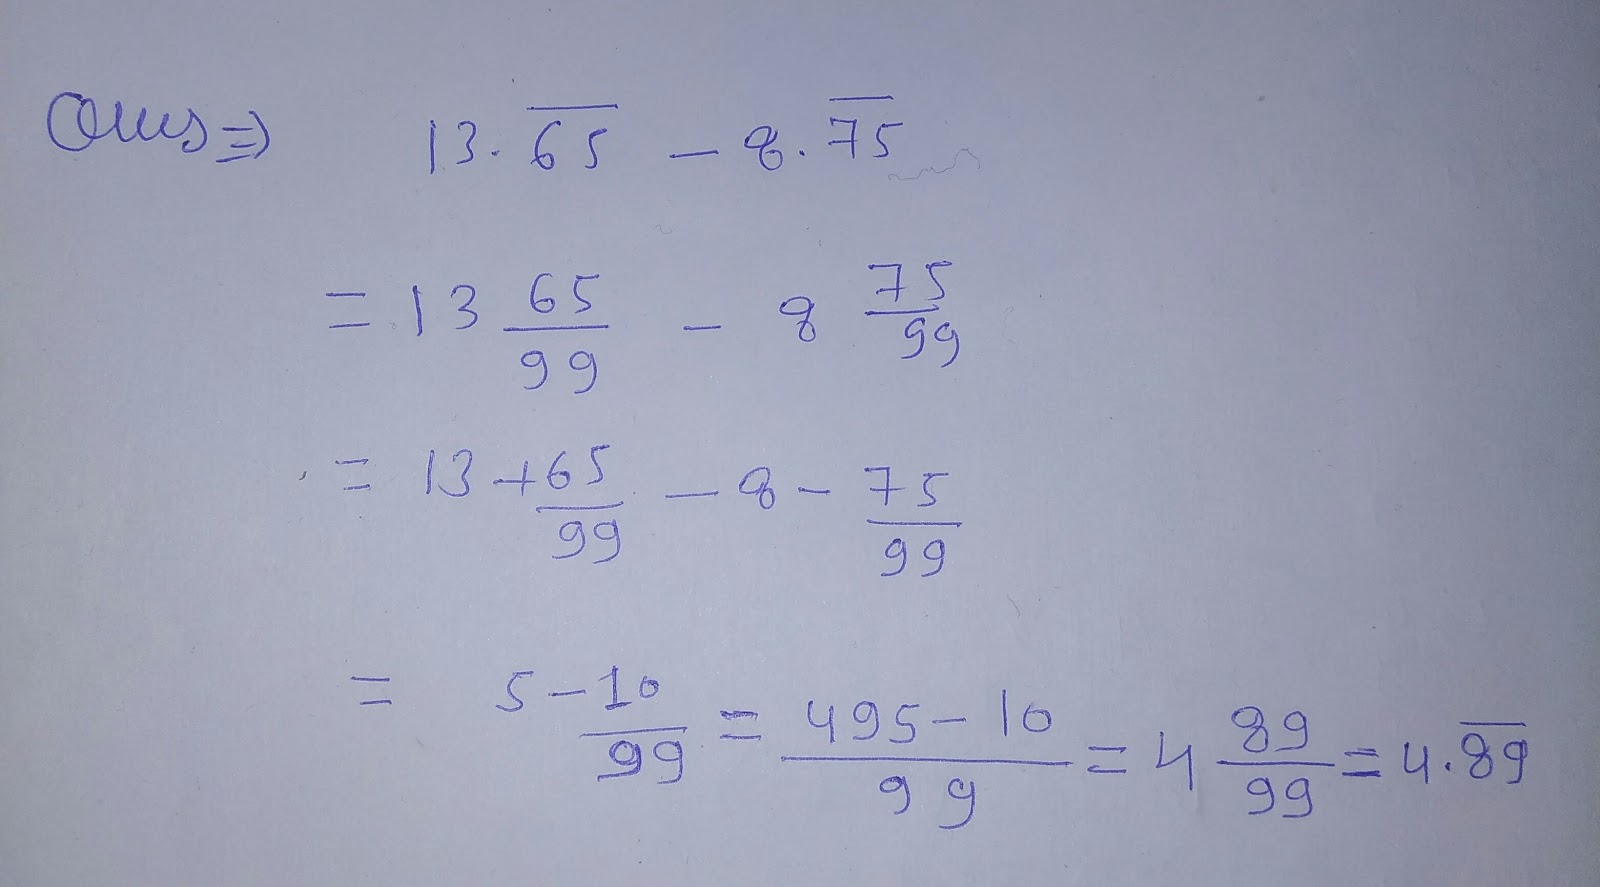 Ques ⇒ 13.6̅5̅ - 8.7̅5̅
= 13 65/99 - 8 75/99
= 13 + 65/99 - 8 - 75/99
= 5 - 10/99 = 495 - 10/99 = 4 89/99 = 4.8̅9̅